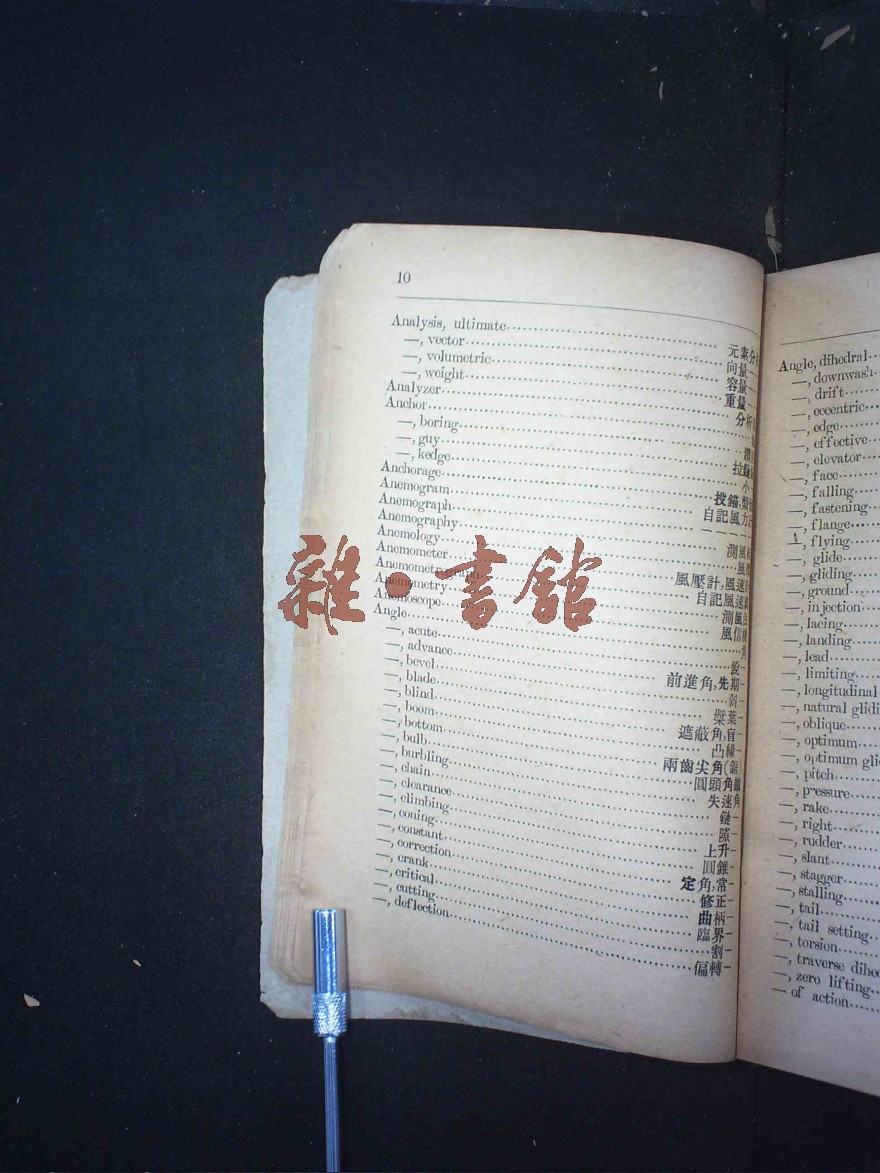 10
Analysis, ultimate 元素分析
—, vector 向量—
—, volumetric 容量—
—, weight 重量—
Analyzer 分析
Anchor
—, boring
—, guy 拉
—, kedge 小
Anchorage 投錨
Anemogram 自記風力
Anemograph — — — —
Anemography 測風
Anemology 風
Anemometer 風壓計,風速計
Anemometrograph 自記風速
Anemometry 測風
Anemoscope 風信
Angle 角
—, acute 銳—
—, advance 前進角,先期—
—, bevel 斜—
—, blade 槳葉—
—, blind 遮蔽角,盲—
—, boom 凸緣—
—, bottom 兩齒尖角(鋸)
—, bulb 圓頭角鐵
—, burbling 失速角
—, chain 鏈—
—, clearance 隙—
—, climbing 上升—
—, coning 圓錐—
—, constant 定角,常—
—, correction 修正—
—, crank 曲柄—
—, critical 臨界—
—, cutting 割—
—, deflection 偏轉—
Angle, dihedral
—, downwash
—, drift
—, eccentric
—, edge
—, effective
—, elevator
—, face
—, falling
—, fastening
—, flange
—, flying
—, glide
—, gliding
—, ground
—, injection
—, lacing
—, landing
—, lead
—, limiting
—, longitudinal
—, natural glidi
—, oblique
—, optimum
—, optimum gli
—, pitch
—, pressure
—, rake
—, right
—, rudder
—, slant
—, stagger
—, stalling
—, tail
—, tail setting
—, torsion
—, traverse dihe
—, zero lifting
— of action
雜·書館